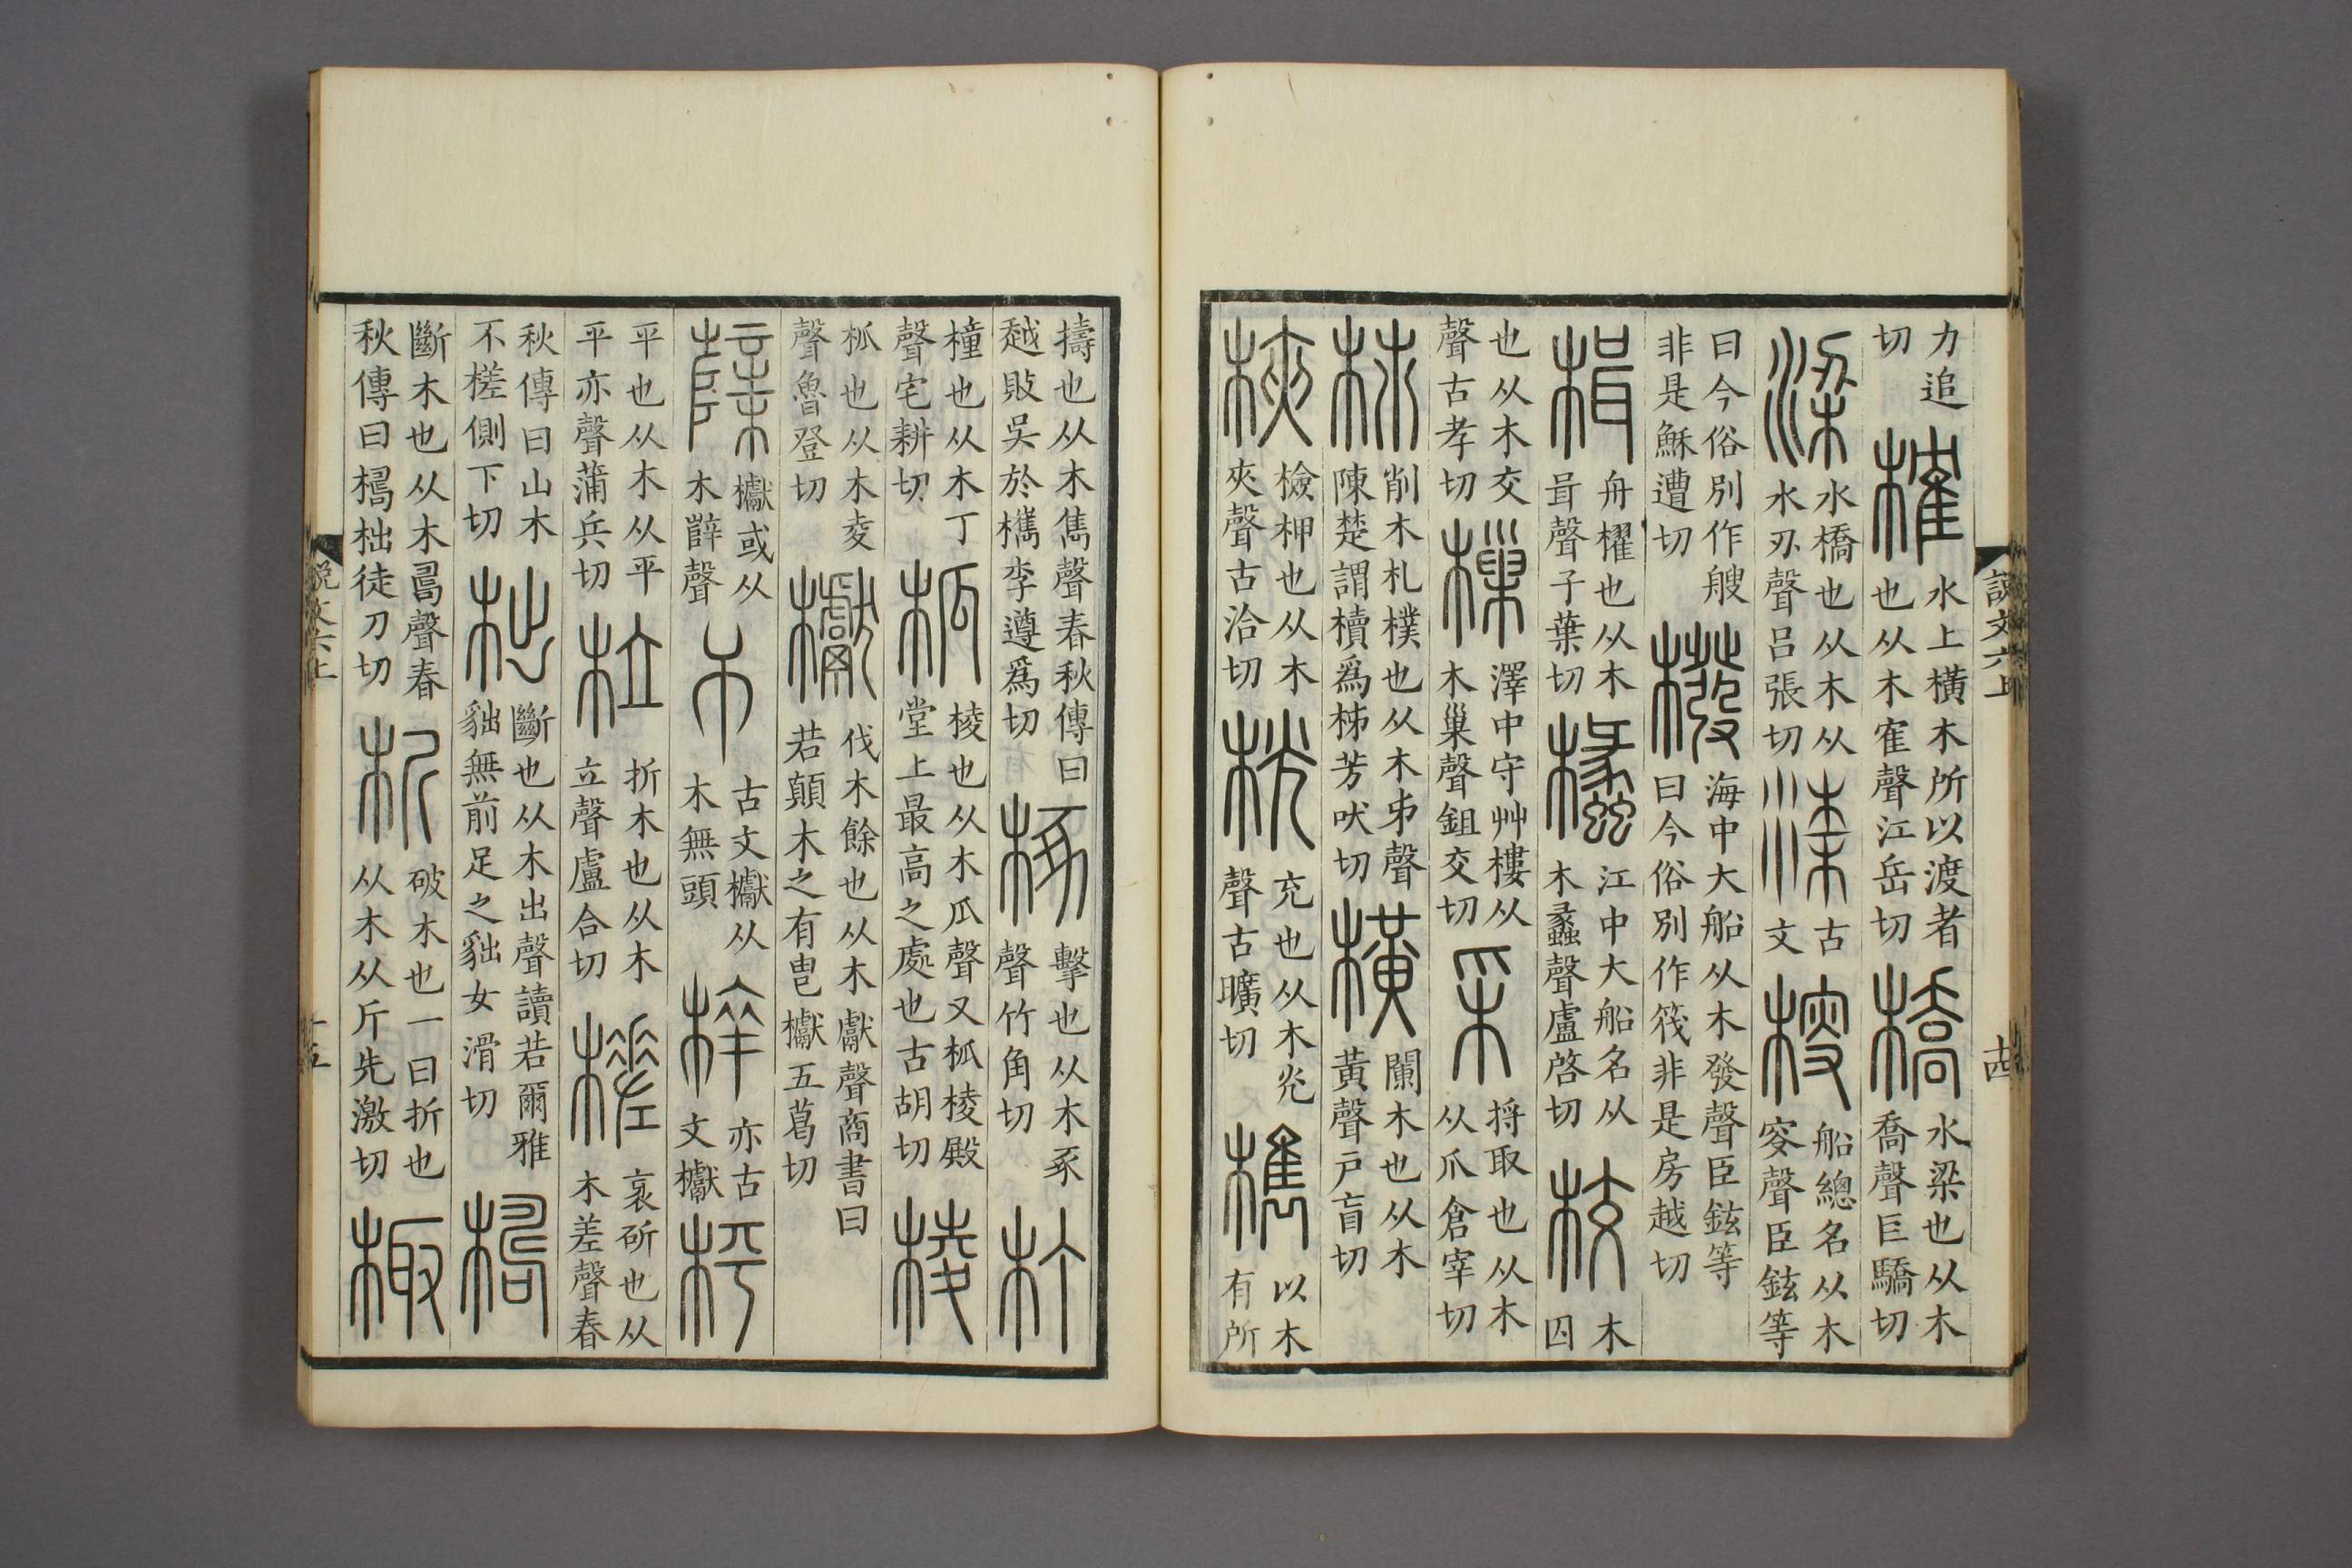 說文六上 十四
力追切榷水上橫木所以渡者也从木隺聲江岳切橋水梁也从木喬聲巨驕切
梁水橋也从木从水刅聲呂張切㴝古文㮴船總名从木叜聲臣鉉等
曰今俗別作艘非是穌遭切橃海中大船从木發聲臣鉉等曰今俗別作筏非是房越切
楫舟櫂也从木咠聲子葉切欚江中大船名从木蠡聲盧啓切校木囚
也从木交聲古孝切樔澤中守艸樓从木巢聲鉏交切采捋取也从木从爪倉宰切
柿削木札樸也从木𣎵聲陳楚謂櫝爲柹芳吠切橫闌木也从木黃聲戶盲切
梜檢柙也从木夾聲古洽切桄充也从木光聲古曠切檇以木有所
擣也从木雋聲春秋傳曰越敗吳於檇李遵爲切椓擊也从木豖聲竹角切朾
橦也从木丁聲宅耕切柧棱也从木瓜聲又柧棱殿堂上最高之處也古胡切棱
柧也从木夌聲魯登切櫱伐木餘也从木獻聲商書曰若顛木之有㽕㰕五葛切
櫱㰕或从木辥聲𣎴古文㰕从木無頭𣡌亦古文㰕枰
平也从木从平平亦聲蒲兵切柆折木也从木立聲盧合切槎衺斫也从木差聲春
秋傳曰山木不槎側下切柮斷也从木出聲讀若爾雅貀無前足之貀女滑切檮
斷木也从木𠷎聲春秋傳曰檮柮徒刀切析破木也一曰折也从木从斤先激切棷
說文六上 十五